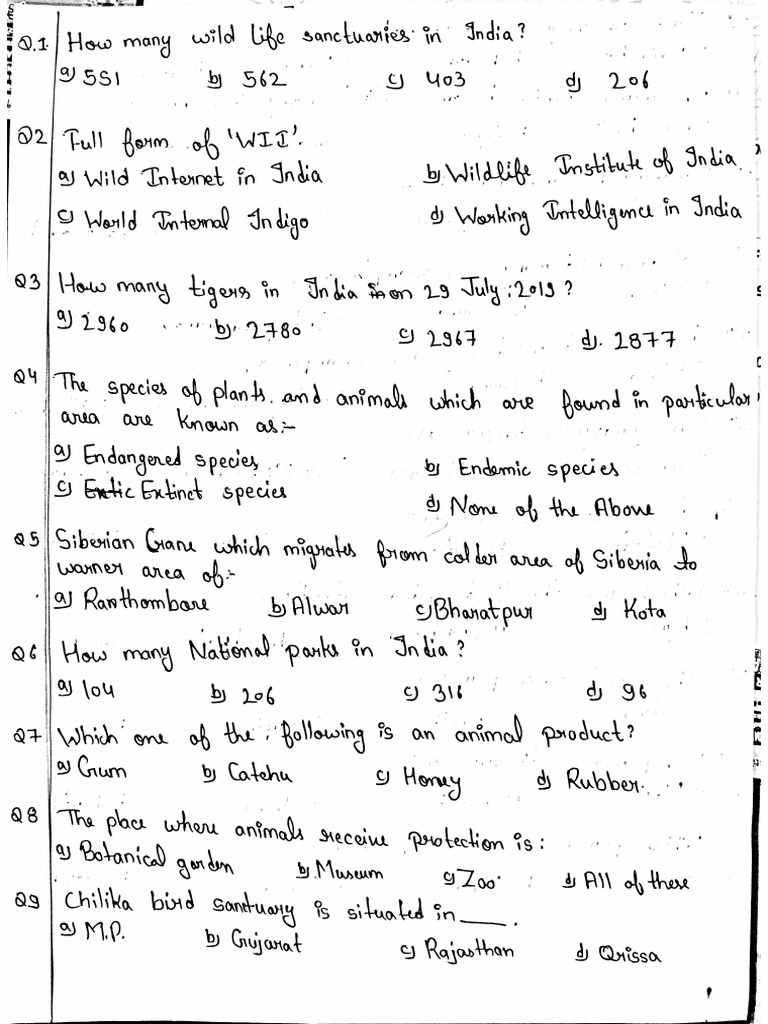 Q.1 How many wild life sanctuaries in India?
a) 551 b) 562 c) 403 d) 206
Q2 Full form of 'WII'.
a) Wild Internet in India b) Wildlife Institute of India
c) World Internal Indigo d) Working Intelligence in India
Q3 How many tigers in India on 29 July, 2019?
a) 2960 b) 2780 c) 2967 d). 2877
Q4 The species of plants and animals which are found in particular
area are known as:-
a) Endangered species b) Endemic species
c) Extinct species d) None of the Above
Q5 Siberian Crane which migrates from colder area of Siberia to
warner area of:-
a) Ranthombore b) Alwar c) Bharatpur d) Kota
Q6 How many National parks in India?
a) 104 b) 206 c) 316 d) 96
Q7 Which one of the following is an animal product?
a) Gum b) Catchu c) Honey d) Rubber
Q8 The place where animals receive protection is:
a) Botanical garden b) Museum c) Zoo d) All of these
Q9 Chilika bird santuary is situated in ____.
a) M.P. b) Gujarat c) Rajasthan d) Orissa